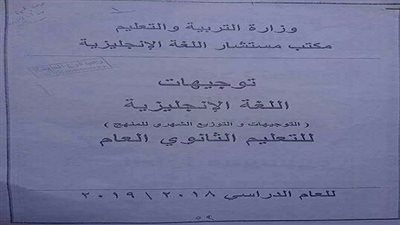 وزارة التربية والتعليم
مكتب مستشار اللغة الإنجليزية
توجيهات
اللغة الإنجليزية
( التوجيهات و التوزيع الشهرى للمنهج )
للتعليم الثانوي العام
للعام الدراسي ٢٠١٨ \ ٢٠١٩